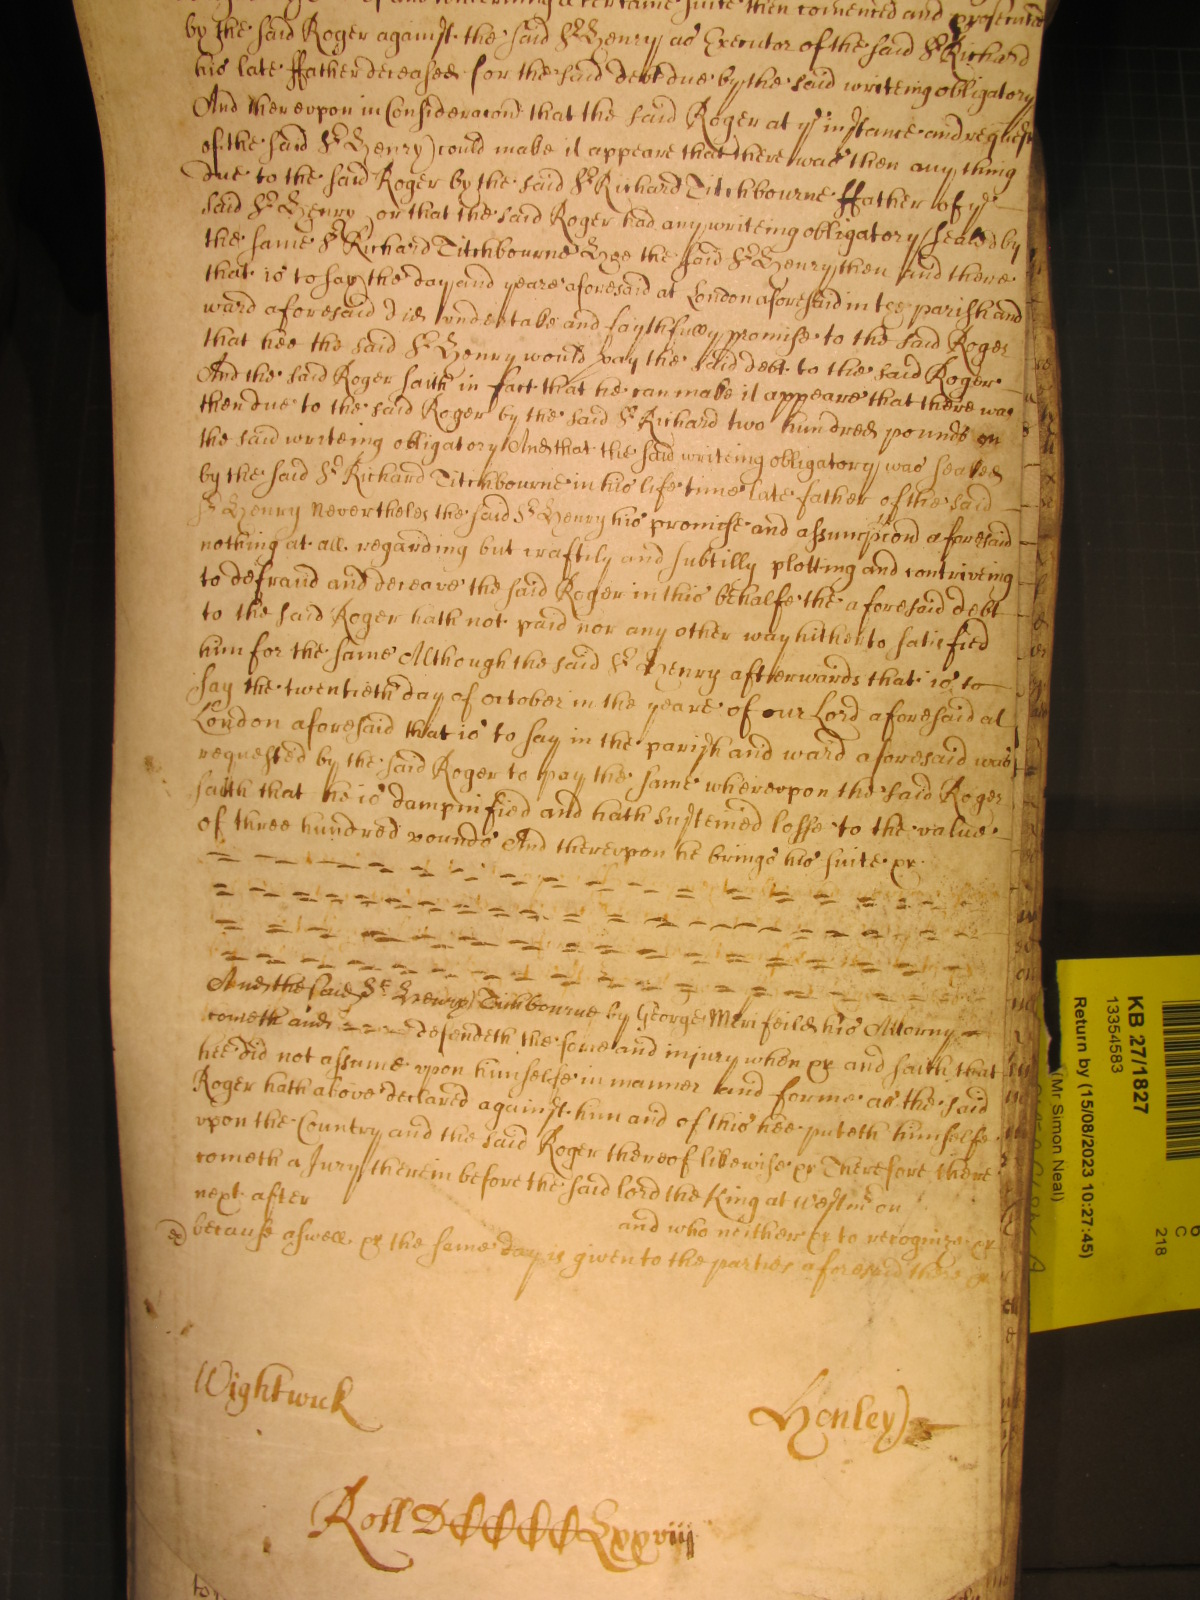 of and concerning a certaine suite then comenced and prosecuted
by the said Roger against the said Sr Henry as Executor of the said Sr Richard
his late ffather deceased for the said debt due by the said writeing obligatory
And therevpon in Consideracon that the said Roger at ye instance and request
of the said Sr Henry could make it appeare that there was then any thing
due to the said Roger by the said Sr Richard Titchbourne ffather of ye
said Sr Henry or that the said Roger had any writeing obligatory sealed by
the same Sr Richard Titchbourne Hee the said Sr Henry then and there
that is to say the day and yeare aforesaid at London aforesaid in the parish and
ward aforesaid did vndertake and faythfully promise to the said Roger
that hee the said Sr Henry would pay the said debt to the said Roger
And the said Roger saith in fact that he can make it appeare that there was
then due to the said Roger by the said Sr Richard two hundred pounds on
the said writeing obligatory And that the said writeing obligatory was sealed
by the said Sr Richard Titchbourne in his life time late father of the said
Sr Henry Nevertheles the said Sr Henry his promise and assumpcion aforesaid
nothing at all regarding but craftily and subtilly plotting and contriveing
to defraud and deceave the said Roger in this behalfe the aforesaid debt
to the said Roger hath not paid nor any other way hitherto satisfied
him for the same Although the said Sr Henry afterwards that is to
say the twentieth day of October in the yeare of our Lord aforesaid at
London aforesaid that is to say in the parish and ward aforesaid was
requested by the said Roger to pay the same wherevpon the said Roger
saith that he is dampnified and hath susteined losse to the value
of three hundred pounds And therevpon he brings his suite &c
And the said Sr Henry Titchbourne by George Merifeild his Attorny
cometh and defendeth the force and injury when &c and saith that
hee did not assume vpon himselfe in manner and forme as the said
Roger hath above declared against him and of this hee puteth himselfe
vpon the Country and the said Roger thereof likewise &c Therefore there
cometh a Jury therein before the said lord the King at Westmr on
next after and who neither &c to recognize &c
because aswell &c the same day is given to the parties aforesaid there &c
Wightwick Henley
Roll DCCCCLxxviij
KB 27/1827
13354583
Return by (15/08/2023 10:27:45)
(Mr Simon Neal)
C
218